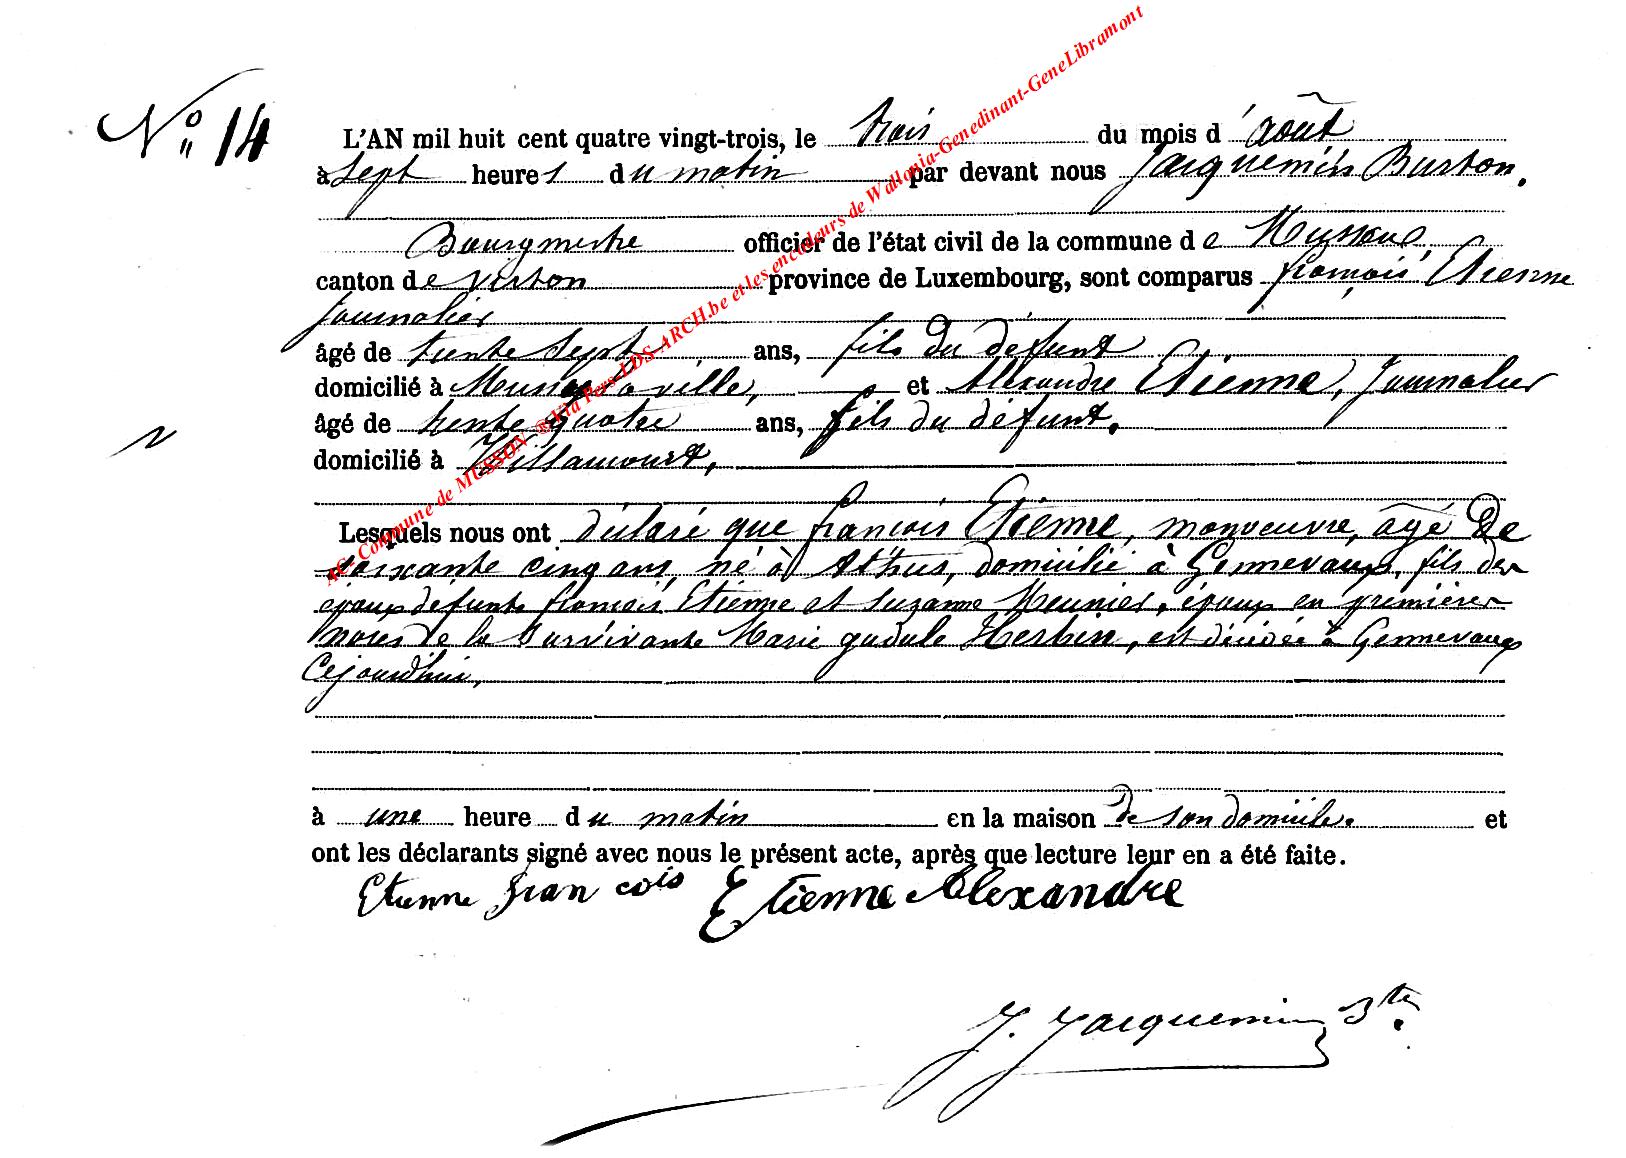 N° 14
L'AN mil huit cent quatre vingt-trois, le trois du mois d'août
à sept heures du matin par devant nous Jacquemin Burton.
Bourgmestre officier de l'état civil de la commune de Musson,
canton de Virton province de Luxembourg, sont comparus françois Etienne
journalier
âgé de trente sept ans, fils du défunt
domicilié à Musson la ville, et Alexandre Etienne, Journalier
âgé de trente quatre ans, fils du défunt.
domicilié à Villancourt,
Lesquels nous ont déclaré que françois Etienne, manoeuvre, âgé de
soixante cinq ans, né à Athus, domicilié à Gennevaux, fils des
époux défunts françois Etienne et Suzanne Meunier, époux en premières
noces de la survivante Marie gudule Herbin, est décédé à Gennevaux
Cejourdhui,
à une heure du matin en la maison de son domicile. et
ont les déclarants signé avec nous le présent acte, après que lecture leur en a été faite.
Etienne francois Etienne Alexandre
J. Jacquemin Bte.
AC. Commune de MUSSON ® via Pers-LDS-ARCH.be et les encodeurs de Wallonia-Genedinant-GeneLibramont